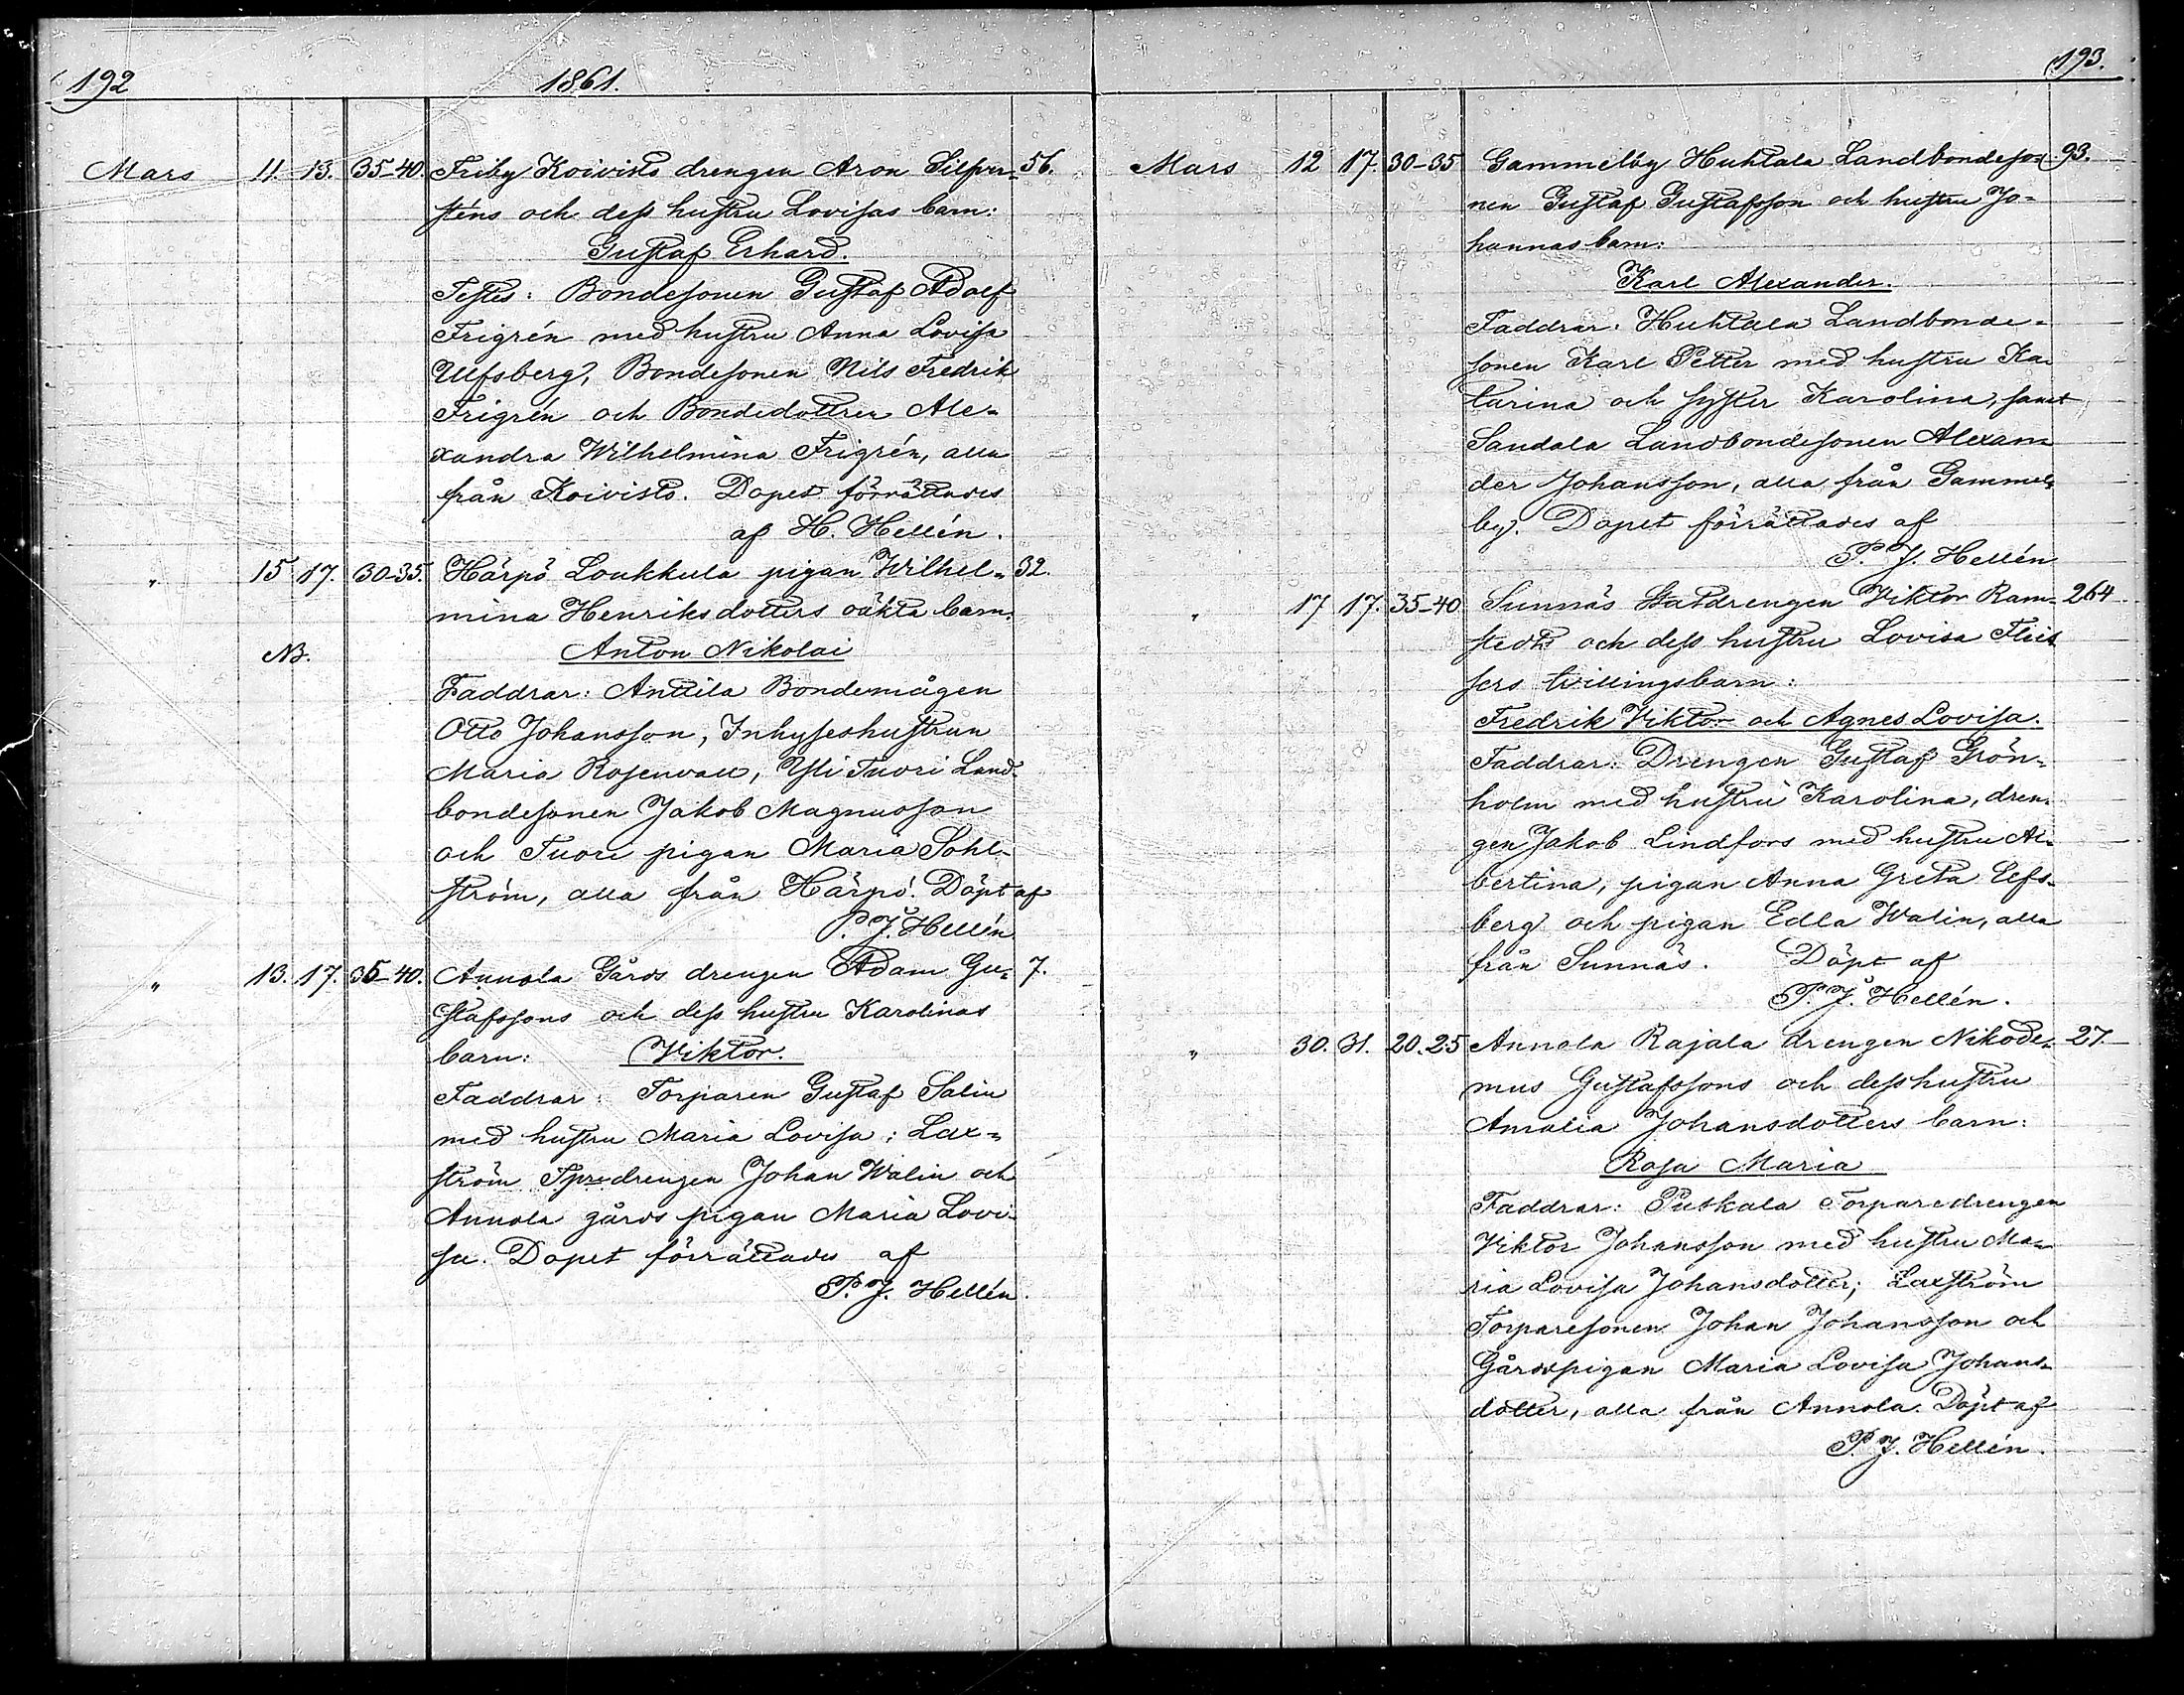 192 1861.
Mars 11. 13. 35-40. Friby Koivisto drengen Aron Silfver- 56.
sténs och dess hustru Lovisas barn:
Gustaf Erhard.
Testes: Bondesonen Gustaf Adolf
Frigrén med hustru Anna Lovisa
Ulfsberg, Bondesonen Nils Fredrik
Frigrén och Bondedottren Ale-
xandra Wilhelmina Frigrén, alla
från Koivisto. Dopet förrättades
af H. Hellén.
" 15 17. 30-35. Härpö Loukkula pigan Wilhel- 32.
mina Henriksdotters oäkta barn:
NB. Anton Nikolai
Faddrar: Anttila Bondemågen
Otto Johansson, Inhyseshustrun
Maria Rosenvall, Yli Tuori Land-
bondesonen Jakob Magnusson
och Tuori pigan Maria Sohl-
ström, alla från Härpö. Döpt af
P. J. Hellén
" 13. 17. 35-40. Annola Gårds drengen Adam Gu- 7.
stafssons och dess hustru Karolinas
barn: Viktor.
Faddrar: Torparen Gustaf Salin
med hustru Maria Lovisa; Lax-
ström Tpredrengen Johan Walin och
Annola gårds pigan Maria Lovi-
sa. Dopet förrättades af
P. J. Hellén.
193.
Mars 12 17. 30-35 Gammelby Huhtala Landbondeso- 93.
nen Gustaf Gustafsson och hustru Jo-
hannas barn:
Karl Alexander.
Faddrar: Huhtala Landbonde-
sonen Karl Petter med hustru Ka-
tarina och syster Karolina, samt
Sandala Landbondesonen Alexan-
der Johansson, alla från Gammel-
by. Dopet förrättades af
P. J. Hellén
" 17 17. 35-40. Sunnäs Statdrengen Viktor Ram- 264
stedts och dess hustru Lovisa
sers tvillingsbarn:
Fredrik Viktor och Agnes Lovisa.
Faddrar: Drengen Gustaf Grön-
holm med hustru Karolina, dren-
gen Jakob Lindfors med hustru Al-
bertina, pigan Anna Greta Elfs-
berg och pigan Edla Walin, alla
från Sunnäs. Döpt af
P. J. Hellén.
" 30. 31. 20.25 Annola Rajala drengen Nikode- 27.
mus Gustafssons och dess hustru
Amalia Johansdotters barn:
Rosa Maria
Faddrar: Puskala Torparedrengen
Viktor Johansson med hustru Ma-
ria Lovisa Johansdotter; Laxström
Torparesonen Johan Johansson och
Gårdspigan Maria Lovisa Johans-
dotter, alla från Annola. Döpt af
P. J. Hellén.